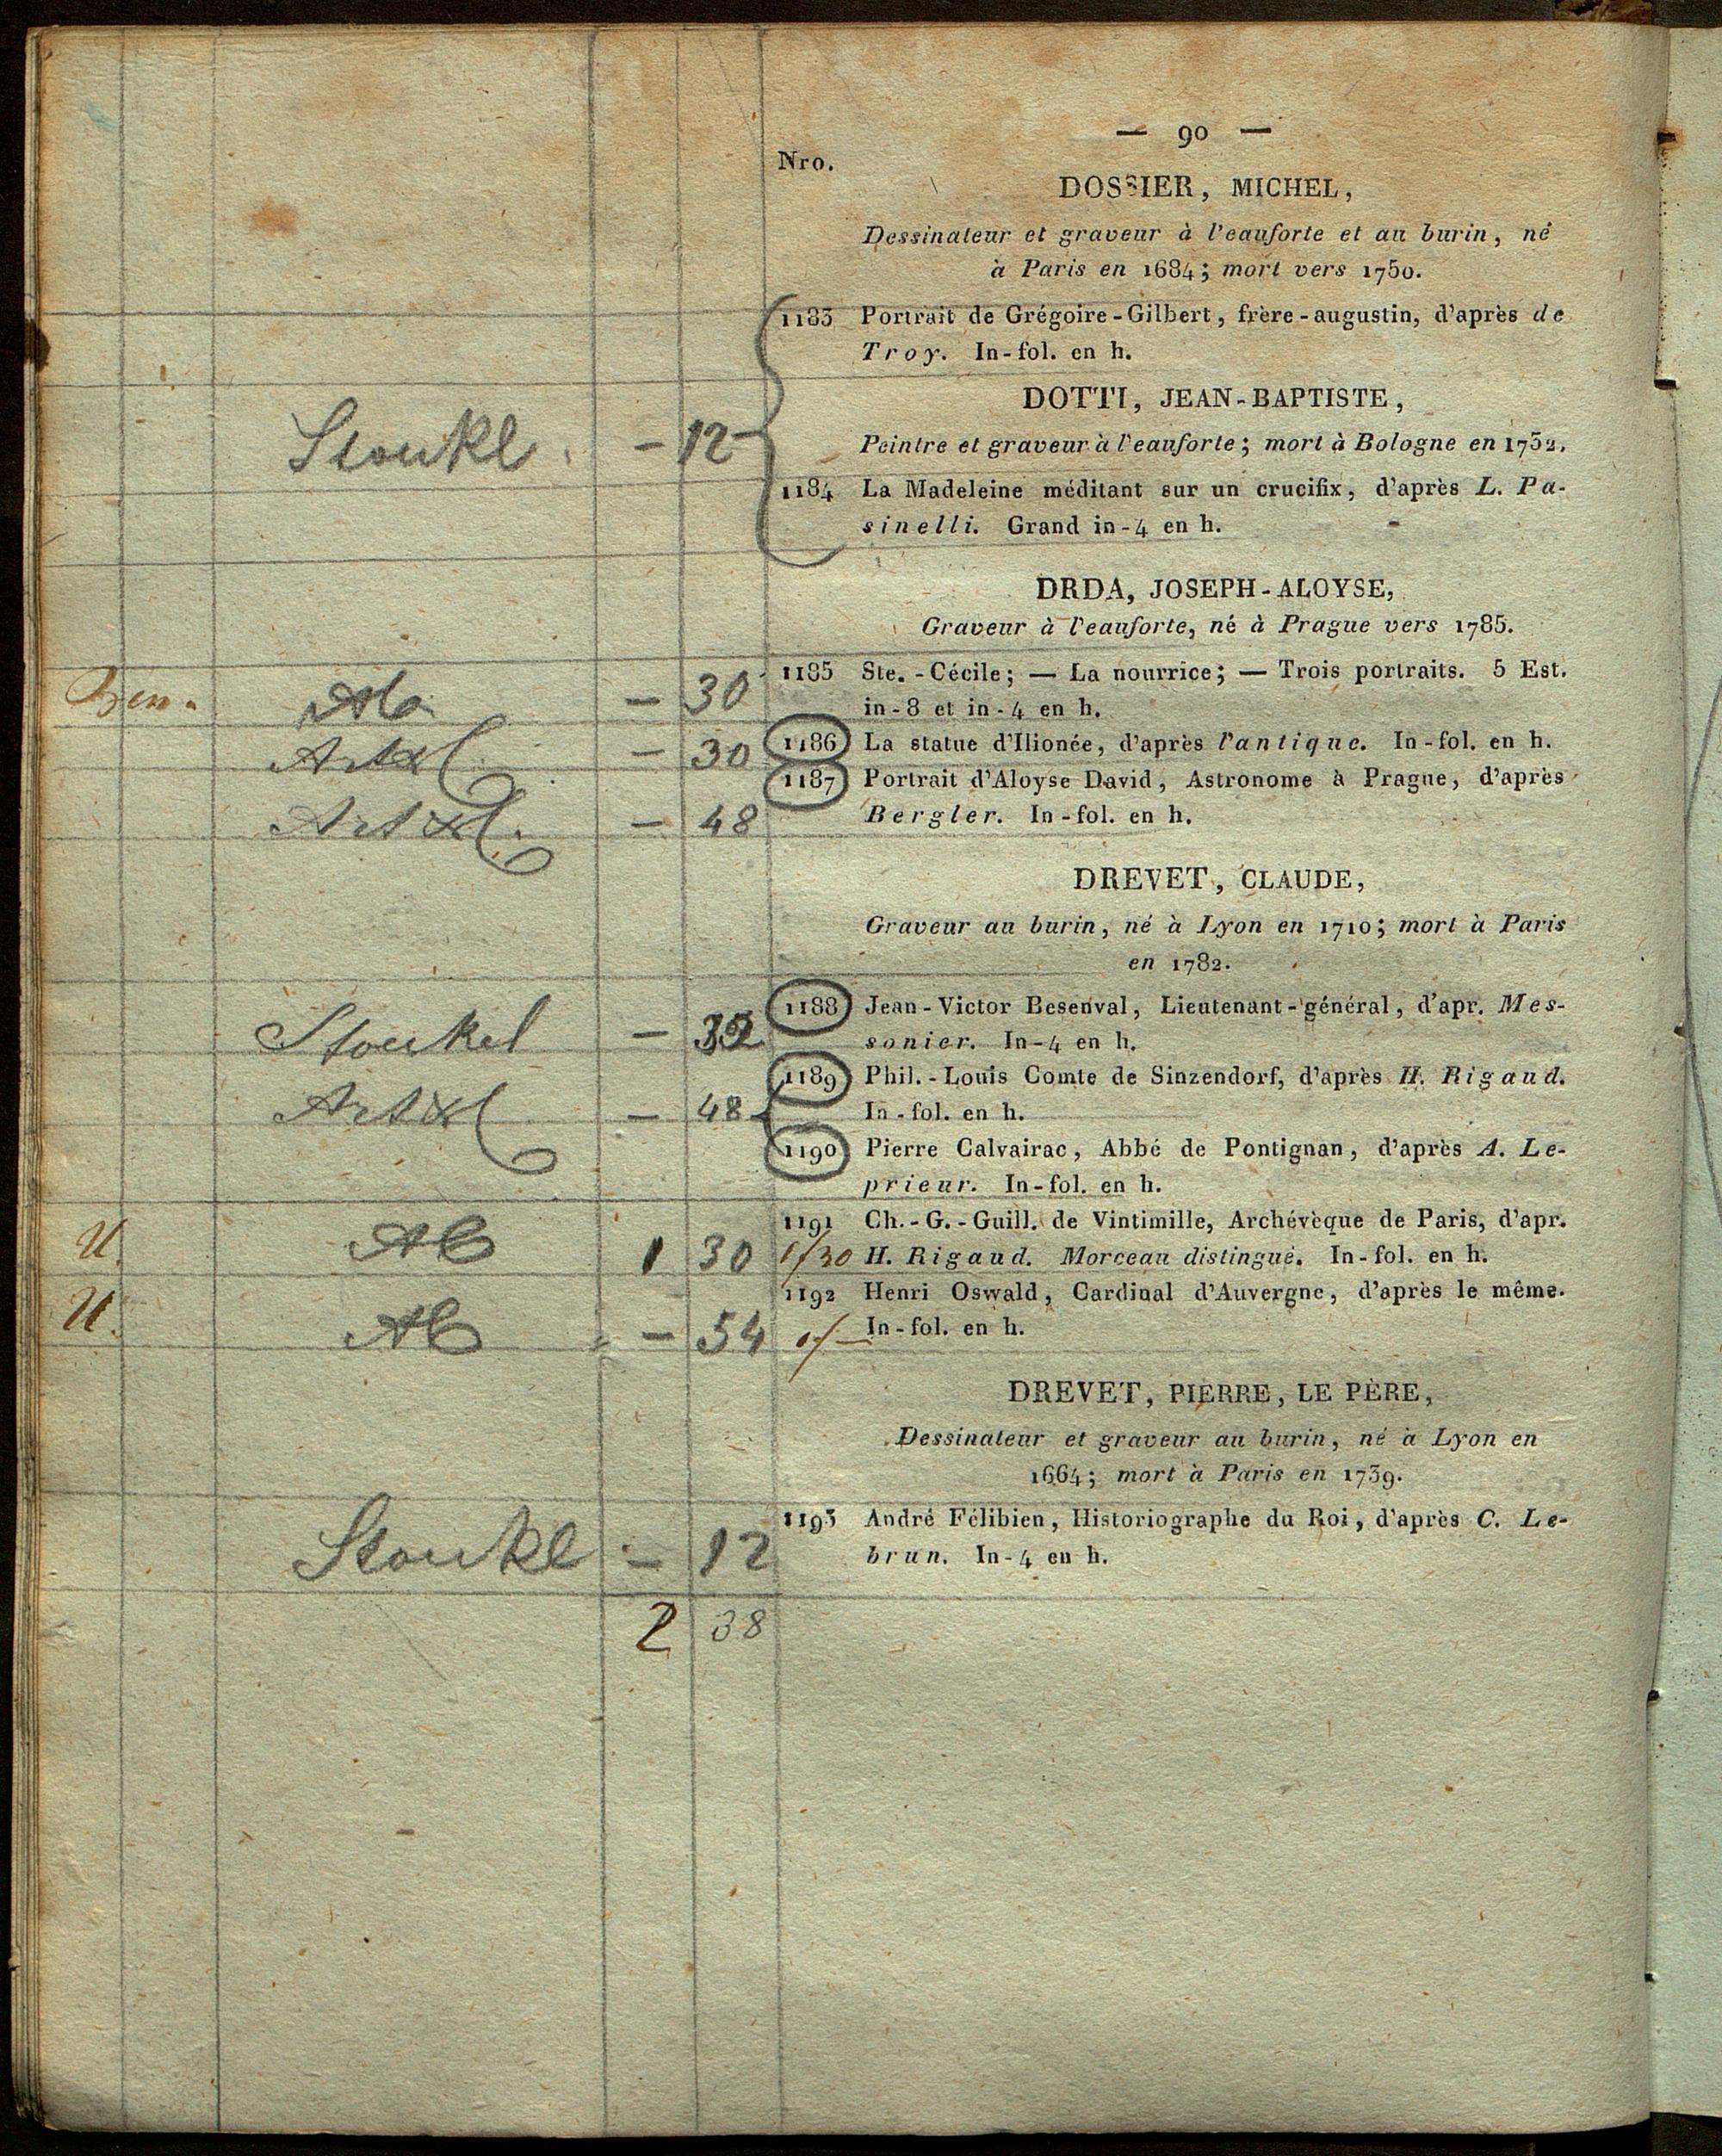 — 90 —
Nro.
DOSSIER, MICHEL,
Dessinateur et graveur à l'eauforte et au burin, né
à Paris en 1684; mort vers 1750.
1183 Portrait de Grégoire-Gilbert, frère-augustin, d'après de
Troy. In-fol. en h.
DOTTI, JEAN-BAPTISTE,
- 12 Peintre et graveur à l'eauforte; mort à Bologne en 1752.
1184 La Madeleine méditant sur un crucifix, d'après L. Pa-
sinelli. Grand in-4 en h.
DRDA, JOSEPH-ALOYSE,
Graveur à l'eauforte, né à Prague vers 1785.
- 30 1185 Ste.-Cécile; — La nourrice; — Trois portraits. 5 Est.
in-8 et in-4 en h.
- 30 1186 La statue d'Ilionée, d'après l'antique. In-fol. en h.
1187 Portrait d'Aloyse David, Astronome à Prague, d'après
- 48 Bergler. In-fol. en h.
DREVET, CLAUDE,
Graveur au burin, né à Lyon en 1710; mort à Paris
en 1782.
1188 Jean-Victor Besenval, Lieutenant-général, d'apr. Mes-
Stoukel - sonier. In-4 en h.
1189 Phil.-Louis Comte de Sinzendorf, d'après H. Rigaud.
- 48 In-fol. en h.
1190 Pierre Calvairac, Abbé de Pontignan, d'après A. Le-
prieur. In-fol. en h.
1191 Ch.-G.-Guill. de Vintimille, Archévèque de Paris, d'apr.
U. 1 30 1/30 H. Rigaud. Morceau distingué. In-fol. en h.
1192 Henri Oswald, Cardinal d'Auvergne, d'après le même.
U. - 54 In-fol. en h.
DREVET, PIERRE, LE PÈRE,
Dessinateur et graveur au burin, né à Lyon en
1664; mort à Paris en 1739.
1193 André Félibien, Historiographe du Roi, d'après C. Le-
Stoukl - 12 brun. In-4 en h.
2 38